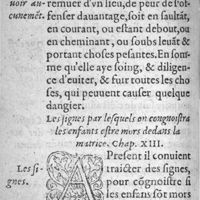 uoir au- remuer d'vn lieu, de peur de l'of-
cunemēt. fenser dauantage, soit en sautāt,
en courant, ou estant debout, ou
en cheminant, ou soubs leuāt &
portant choses pesantes. En som
me qu'elle aye soing, & diligen
ce d'euiter, & fuir toutes les cho
ses, qui peuuent causer quelque
dangier.
Les signes par lesquels on congnoistra
les enfants estre mors dedans la
matrice. Chap. XIII.
A Present il conuient
Les si- traicter des signes,
gnes. pour cōgnoistre si
les enfans sōt mors